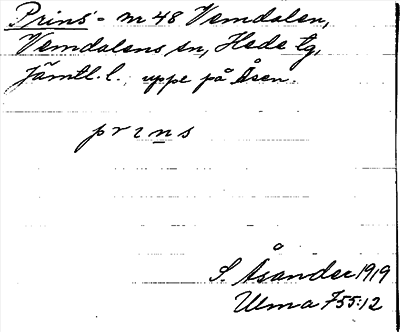 Prins - m 48 Vemdalen,
Vemdalens sn, Hede tg,
Jämtl. l., uppe på Åsen.
prıns
S. Åsander 1919
Ulma 755:12